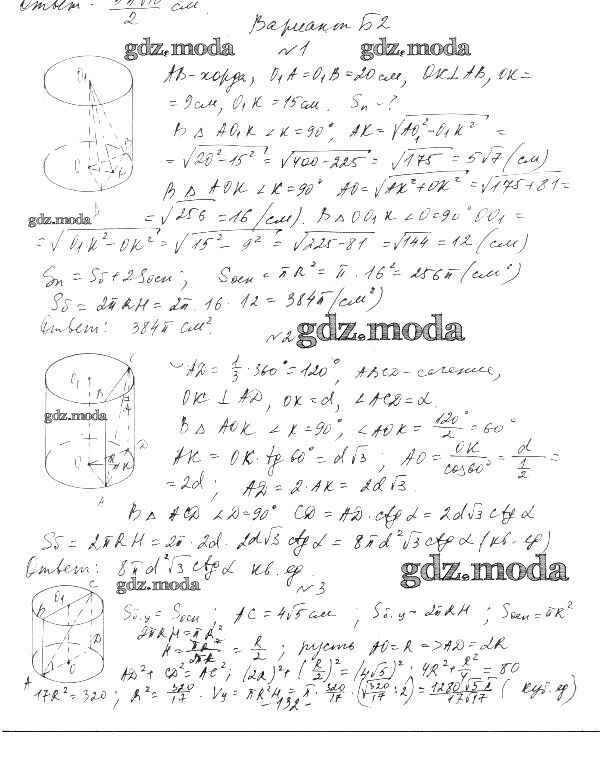 Ответ: см.
2
Вариант Б2
gdz.moda gdz.moda
№1
AB-хорда, O₁A=O₁B=20см, OK⊥AB, OK=
=9см, O₁K=15см. Sп-?
В △ AO₁K ∠K=90°, AK=√AO₁²-O₁K² =
=√20²-15² = √400-225 = √175 = 5√7 (см)
В △ AOK ∠K=90° AO=√AK²+OK² = √175+81 =
gdz.moda
=√256 = 16 (см). В △ OO₁K ∠O=90° OO₁ =
=√O₁K²-OK² = √15²-9² = √225-81 = √144 = 12 (см)
Sп = Sб + 2Sосн; Sосн = πR² = π·16² = 256π (см²)
Sб = 2πRH = 2π·16·12 = 384π (см²)
Ответ: 384π см².
№2 gdz.moda
AD = 1/3·360° = 120°, ABCD-сечение,
OK ⊥ AD, OK=d, ∠ACD=α.
gdz.moda
В △ AOK ∠K=90°, ∠AOK = 120°/2 = 60°
AK = OK·tg60° = d√3; AO = OK/cos60° = d/(1/2) =
=2d; AD = 2·AK = 2d√3.
В △ ACD ∠D=90° CD = AD·ctgα = 2d√3 ctgα
Sб = 2πRH = 2π·2d·2d√3 ctgα = 8πd²√3 ctgα (кв.ед)
Ответ: 8πd²√3 ctgα кв.ед.
gdz.moda gdz.moda
№3
Sб.у = Sосн; AC = 4√5 см; Sб.у = 2πRH; Sосн = πR²
2πRH = πR²
H = πR²/2πR = R/2; пусть AO=R => AD=2R
AD²+CD²=AC²; (2R)²+(R/2)²=(4√5)²; 4R²+R²/4=80
17R²=320; R²=320/17. Vу=πR²H=π·320/17·(√320/17:2)=1280√5π/17√17 (куб.ед)
-132-